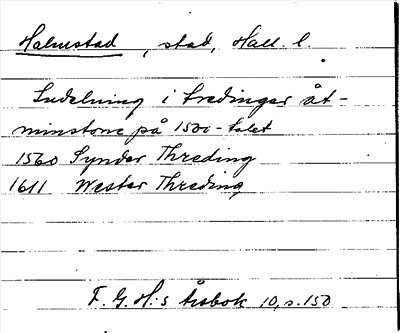 Halmstad, stad, Hall. l.
Indelning i tredingar åt-
minstone på 1500-talet
1560 Synder Threding
1611 Wester Threding
F. G. H:s Årsbok 10, s. 150